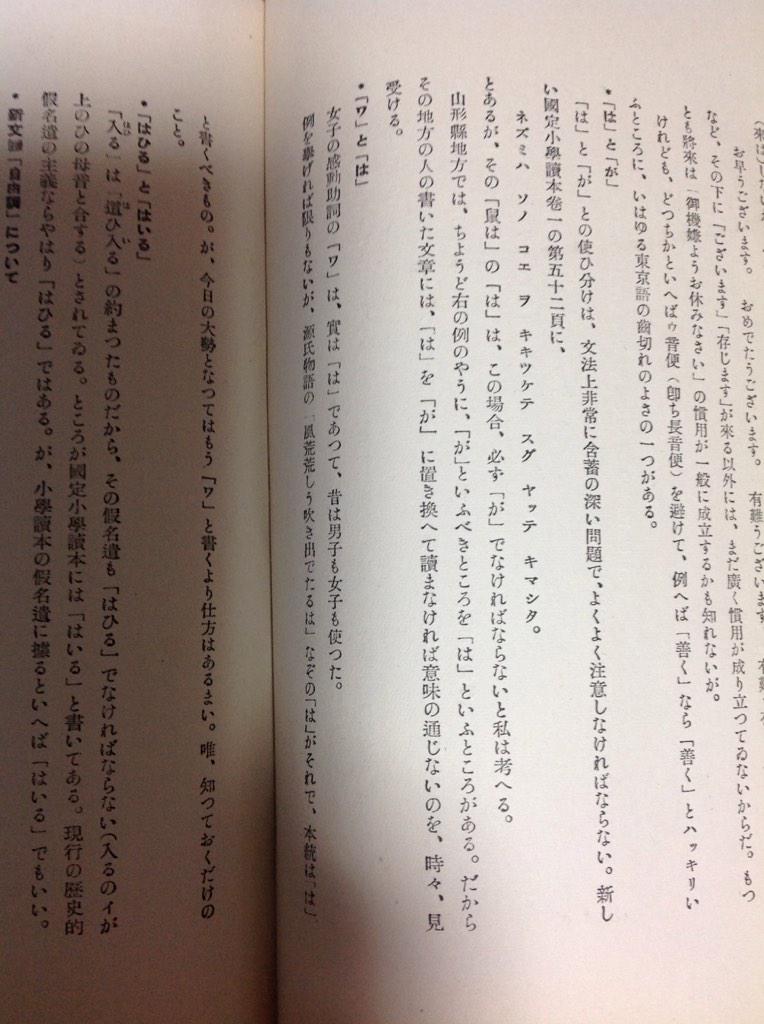 お早うございます。 おめでたうございます。 有難うございます。
など、その下に「ございます」「存じます」が來る以外には、まだ廣く慣用が成り立つてゐないからだ。もつ
とも將來は「御機嫌ようお休みなさい」の慣用が一般に成立するかも知れないが。
けれども、どつちかといへばゥ音便（卽ち長音便）を避けて、例へば「善く」なら「善く」とハッキリい
ふところに、いはゆる東京語の齒切れのよさの一つがある。
・「は」と「が」
「は」と「が」との使ひ分けは、文法上非常に含蓄の深い問題で、よくよく注意しなければならない。新し
い國定小學讀本卷一の第五十二頁に、
ネズミハ ソノ コエ ヲ キキツケテ スグ ヤッテ キマシタ。
とあるが、その「鼠は」の「は」は、この場合、必ず「が」でなければならないと私は考へる。
山形縣地方では、ちようど右の例のやうに、「が」といふべきところを「は」といふところがある。だから
その地方の人の書いた文章には、「は」を「が」に置き換へて讀まなければ意味の通じないのを、時々、見
受ける。
・「ワ」と「は」
女子の感動助詞の「ワ」は、實は「は」であつて、昔は男子も女子も使つた。
例を擧げれば限りもないが、源氏物語の「風荒荒しう吹き出でたるは」なぞの「は」がそれで、本統は「は」
と書くべきもの。が、今日の大勢となつてはもう「ワ」と書くより仕方はあるまい。唯、知つておくだけの
こと。
・「はひる」と「はいる」
「入る」は「這ひ入る」の約まつたものだから、その假名遣も「はひる」でなければならない（入るのイが
上のひの母音と合する）とされてゐる。ところが國定小學讀本には「はいる」と書いてある。現行の歷史的
假名遣の主義ならやはり「はひる」ではある。が、小學讀本の假名遣に據るといへば「はいる」でもいい。
・新文調「自由調」について